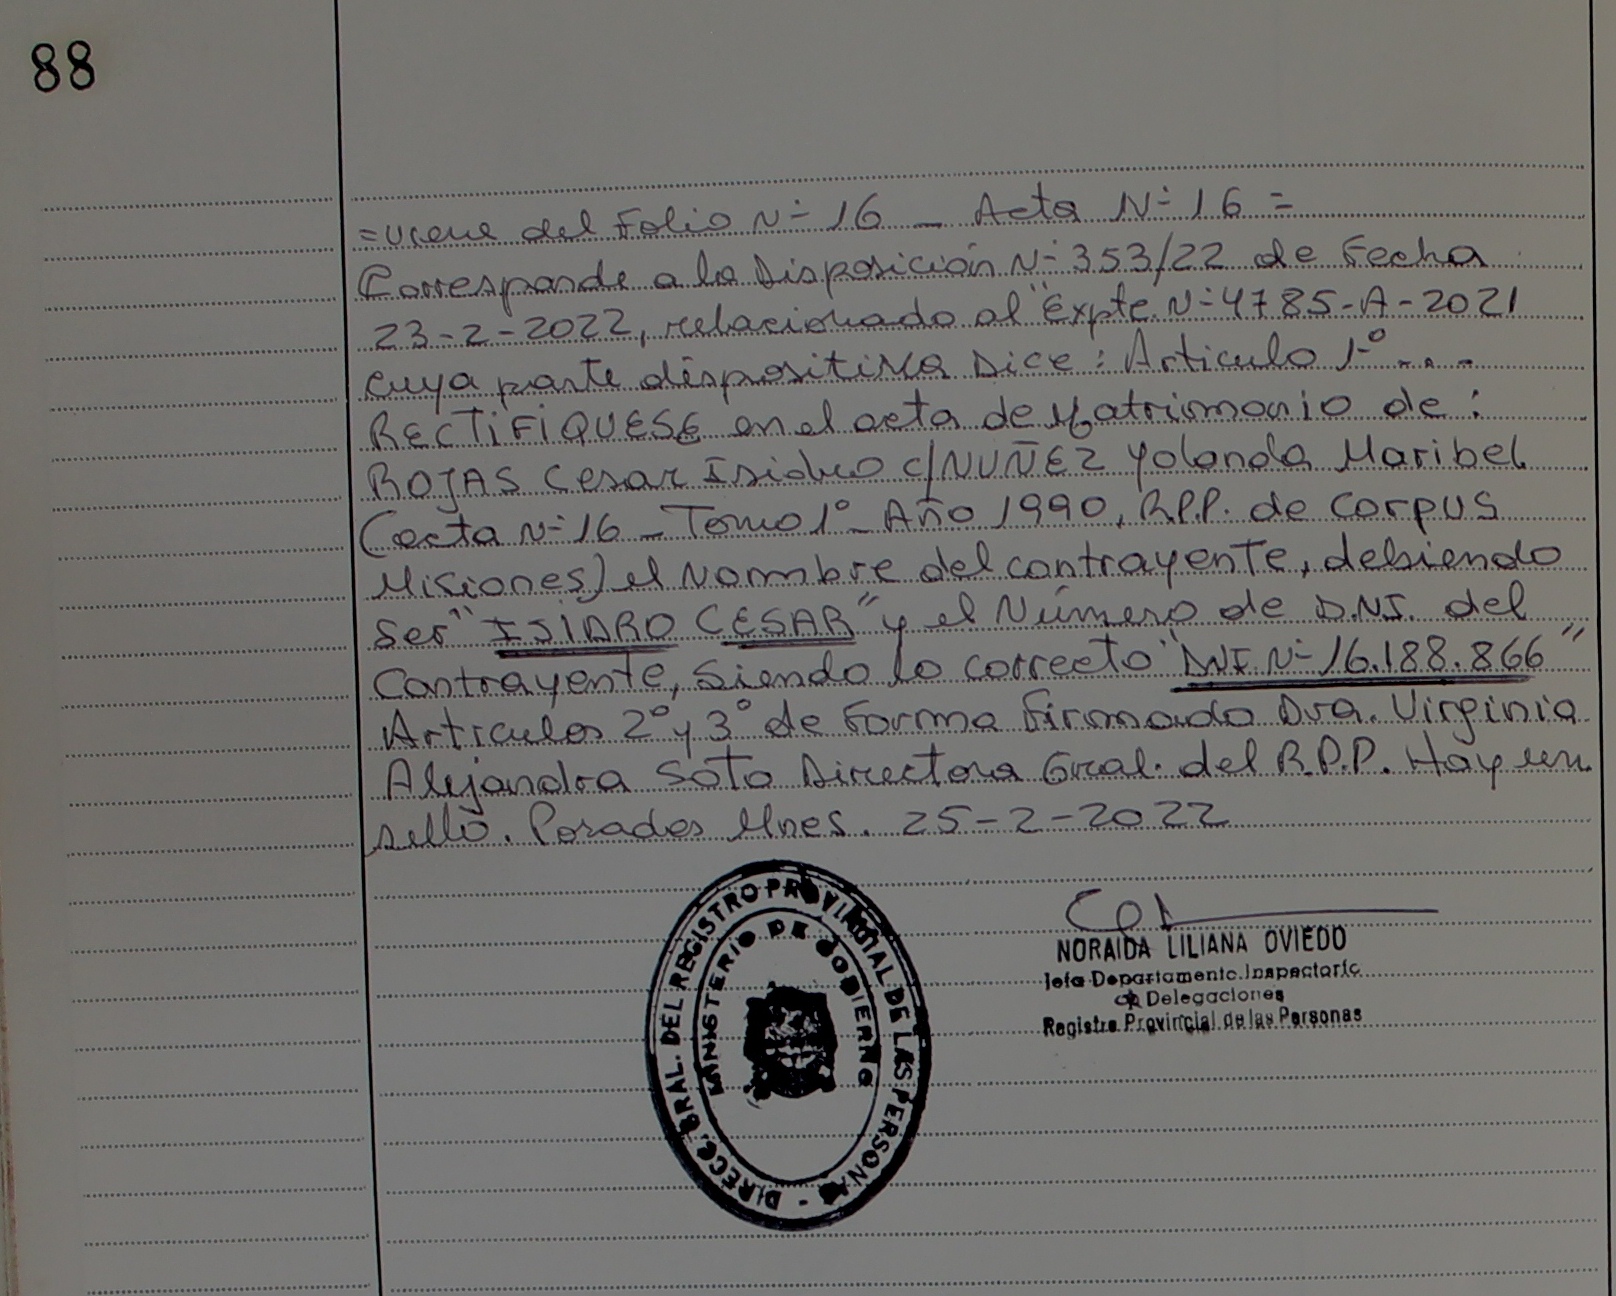 88
= viene del Folio N° 16 - Acta N° 16 =
Corresponde a la Disposición N° 353/22 de Fecha
23-2-2022, relacionado al "Expte. N° 4785-A-2021
cuya parte dispositiva Dice: Articulo 1°...
RECTIFIQUESE en el acta de Matrimonio de:
ROJAS Cesar Isidro c/ NUÑEZ Yolanda Maribel
(acta N° 16 - Tomo 1° - Año 1990, R.P.P. de Corpus
Misiones) el Nombre del contrayente, debiendo
Ser "ISIDRO CESAR" y el Número de D.N.I. del
Contrayente, Siendo lo correcto "DNI N° 16.188.866"
Articulos 2° y 3° de Forma Firmado Dra. Virginia
Alejandra Soto Directora Gral. del R.P.P. Hay un
sello. Posadas Mnes. 25-2-2022
DIRECC. GRAL. DEL REGISTRO PROVINCIAL DE LAS PERSONAS -
MINISTERIO DE GOBIERNO
NORAIDA LILIANA OVIEDO
Jefa Departamento Inspectoría
de Delegaciones
Registro Provincial de las Personas